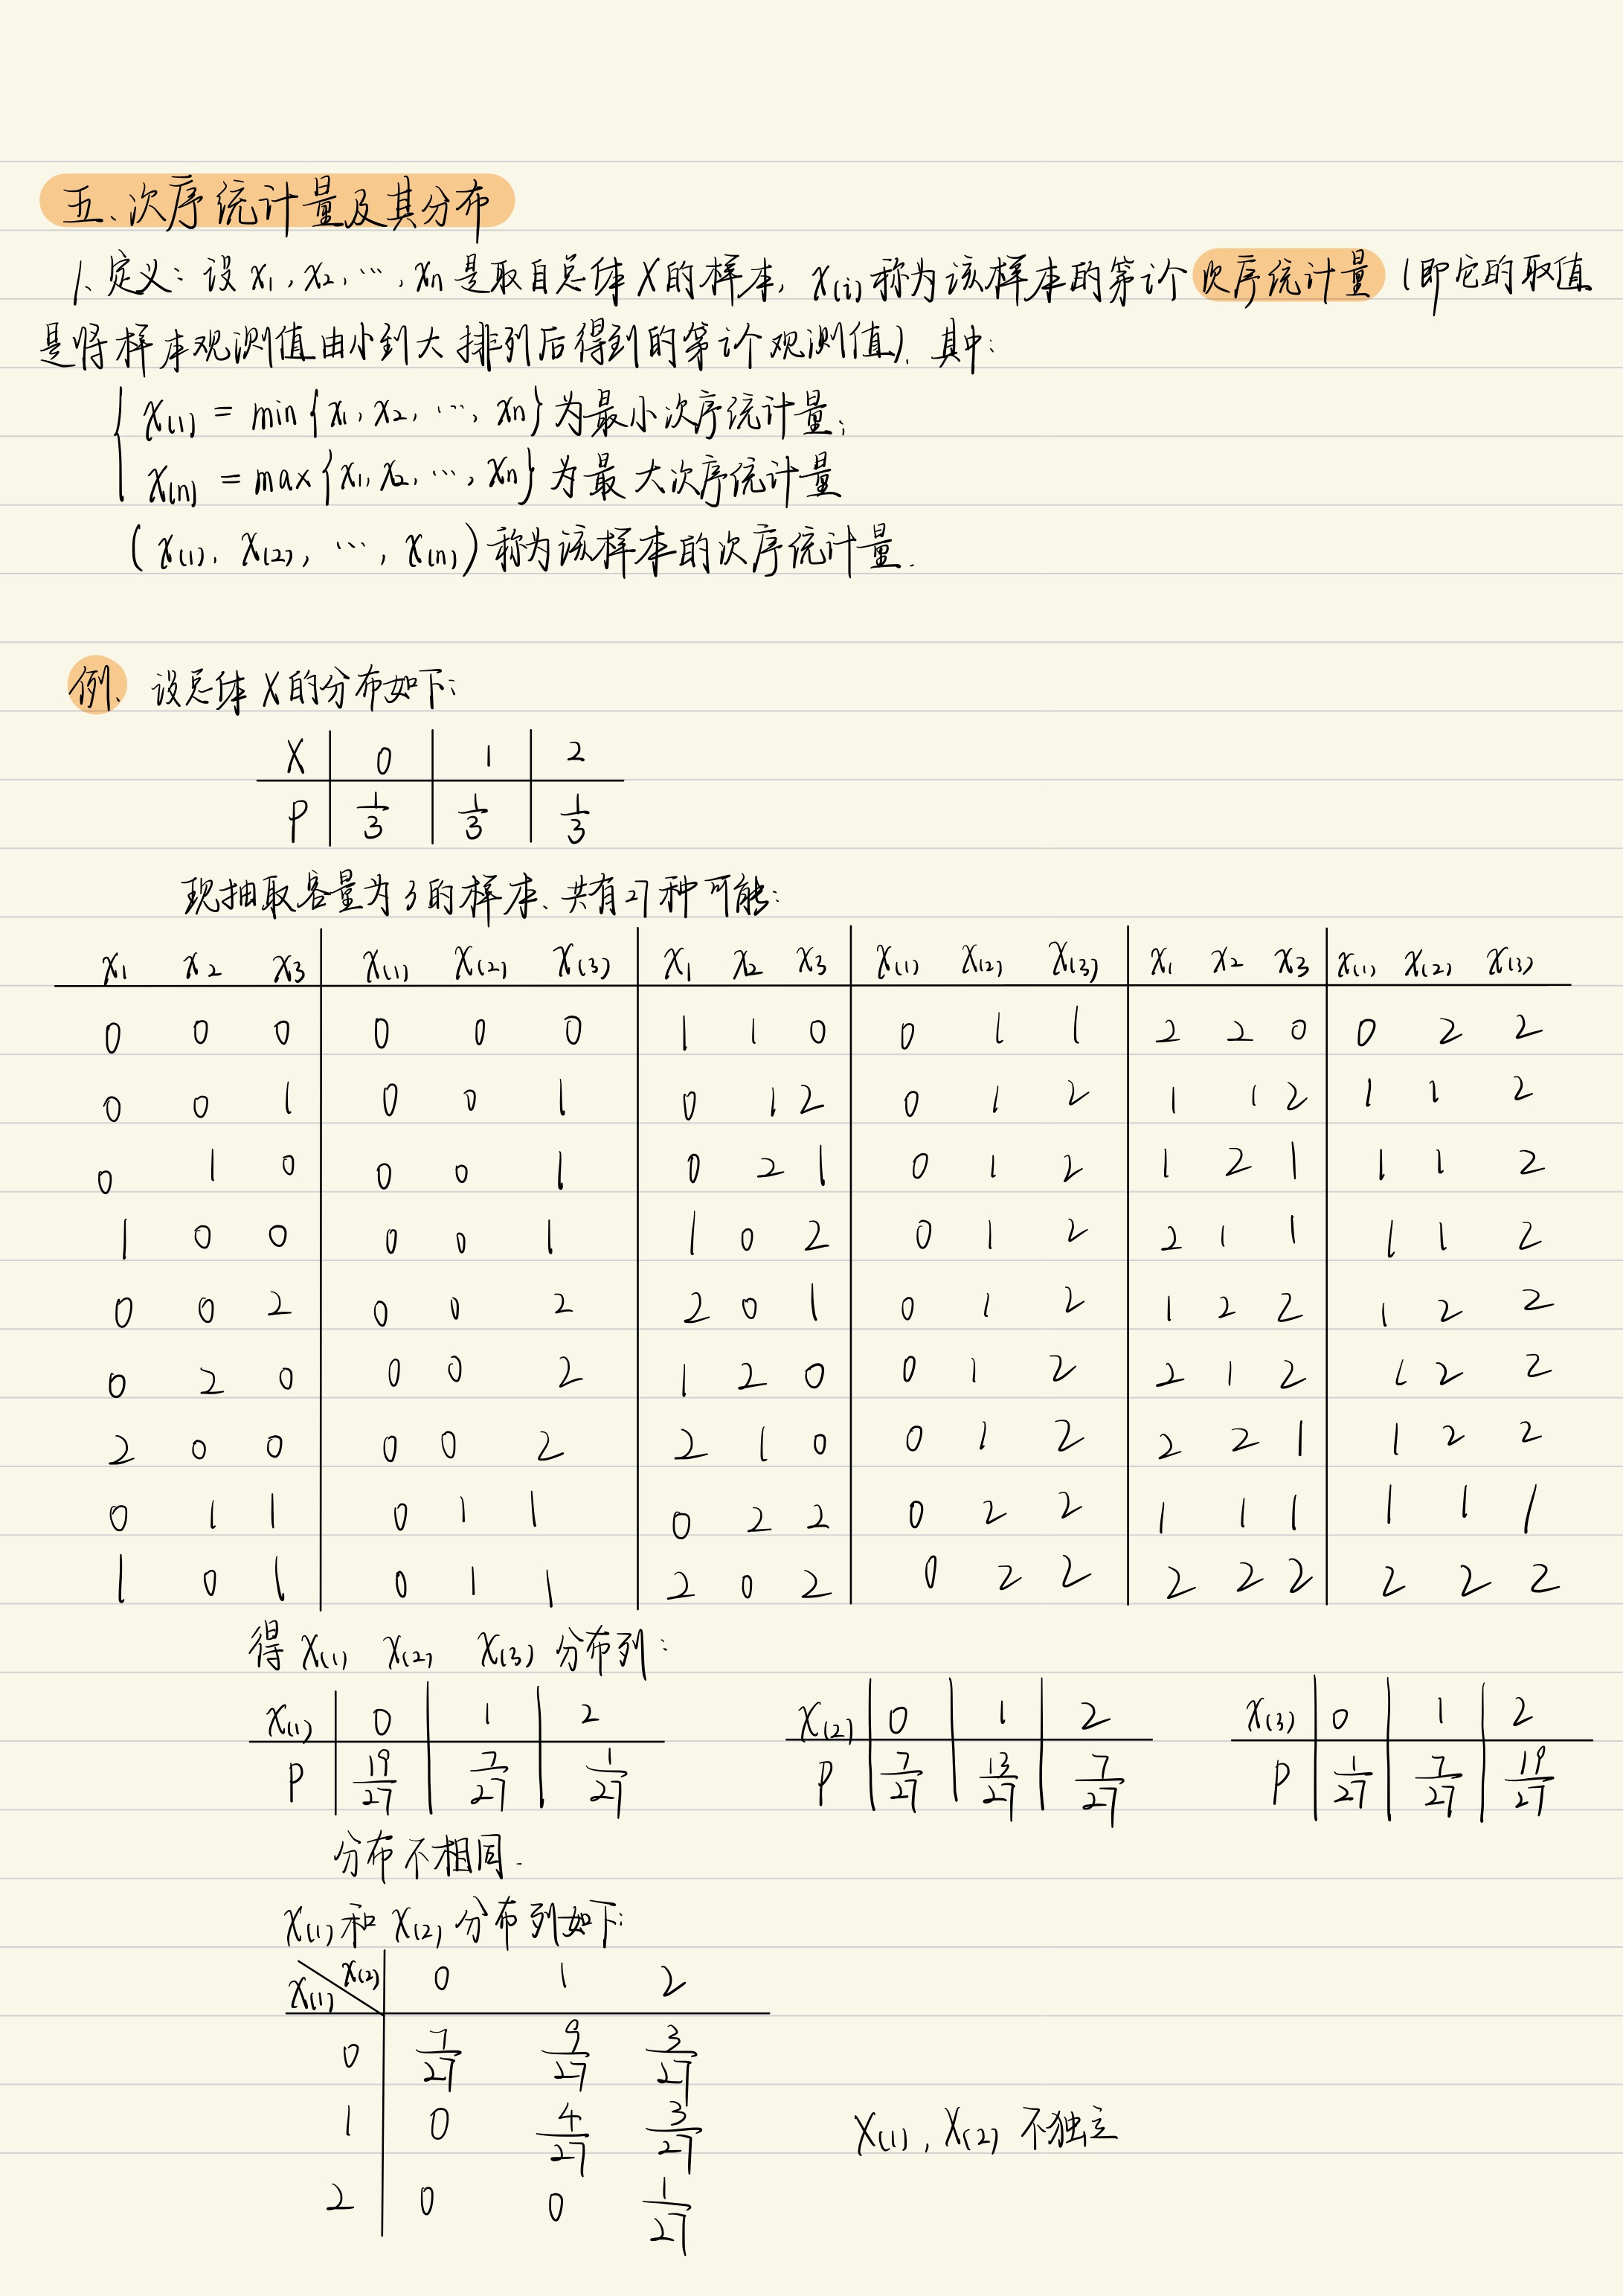 五、次序统计量及其分布
1. 定义：设 x₁, x₂, …, xₙ 是取自总体 X 的样本, x₍ᵢ₎ 称为该样本的第 i 个次序统计量 (即它的取值
是将样本观测值由小到大排列后得到的第 i 个观测值). 其中:
x₍₁₎ = min{x₁, x₂, …, xₙ} 为最小次序统计量;
x₍ₙ₎ = max{x₁, x₂, …, xₙ} 为最大次序统计量
(x₍₁₎, x₍₂₎, …, x₍ₙ₎) 称为该样本的次序统计量.
例. 设总体 X 的分布如下:
X 0 1 2
P 1/3 1/3 1/3
现抽取容量为3的样本、共有27种可能:
x₁ x₂ x₃ x₍₁₎ x₍₂₎ x₍₃₎ x₁ x₂ x₃ x₍₁₎ x₍₂₎ x₍₃₎ x₁ x₂ x₃ x₍₁₎ x₍₂₎ x₍₃₎
0 0 0 0 0 0 1 1 0 0 1 1 2 2 0 0 2 2
0 0 1 0 0 1 0 1 2 0 1 2 1 1 2 1 1 2
0 1 0 0 0 1 0 2 1 0 1 2 1 2 1 1 1 2
1 0 0 0 0 1 1 0 2 0 1 2 2 1 1 1 1 2
0 0 2 0 0 2 2 0 1 0 1 2 1 2 2 1 2 2
0 2 0 0 0 2 1 2 0 0 1 2 2 1 2 1 2 2
2 0 0 0 0 2 2 1 0 0 1 2 2 2 1 1 2 2
0 1 1 0 1 1 0 2 2 0 2 2 1 1 1 1 1 1
1 0 1 0 1 1 2 0 2 0 2 2 2 2 2 2 2 2
得 x₍₁₎ x₍₂₎ x₍₃₎ 分布列:
x₍₁₎ 0 1 2 x₍₂₎ 0 1 2 x₍₃₎ 0 1 2
P 19/27 7/27 1/27 P 7/27 13/27 7/27 P 1/27 7/27 19/27
分布不相同.
x₍₁₎和 x₍₂₎ 分布列如下:
x₍₁₎ x₍₂₎ 0 1 2
0 7/27 9/27 3/27
1 0 4/27 3/27 x₍₁₎, x₍₂₎ 不独立
2 0 0 1/27